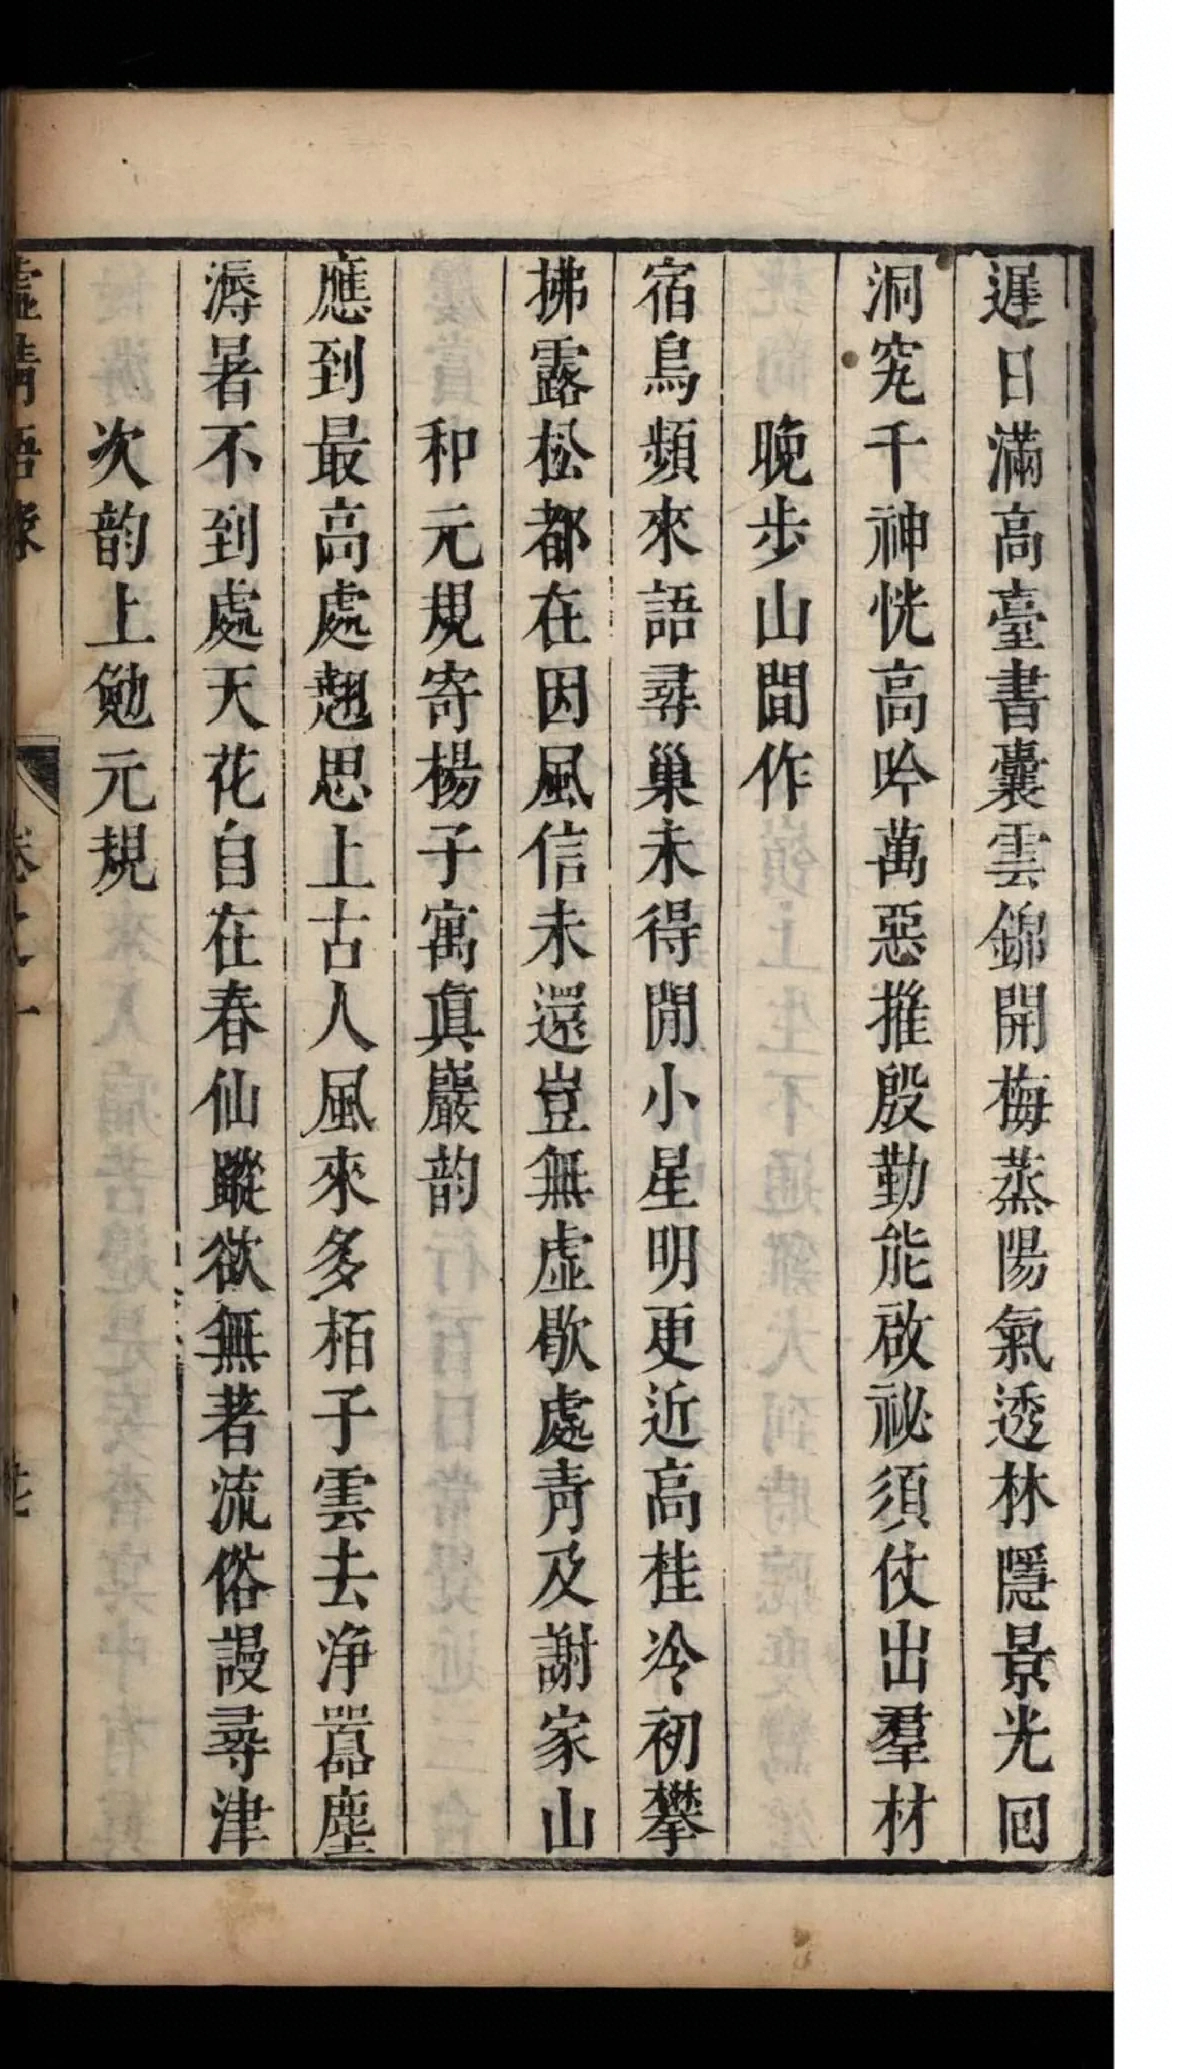 遲日滿高臺書囊雲錦開梅蒸陽氣透林隱景光回
洞究千神恍高吟萬惡摧殷勤能啟祕須仗出羣材
晚步山間作
宿鳥頻來語尋巢未得閒小星明更近高桂冷初攀
拂露松都在因風信未還豈無虛歇處青及謝家山
和元規寄楊子寓真巖韵
應到最高處翹思上古人風來多栢子雲去淨囂塵
溽暑不到處天花自在春仙蹤欲無著流俗謾尋津
次韵上勉元規